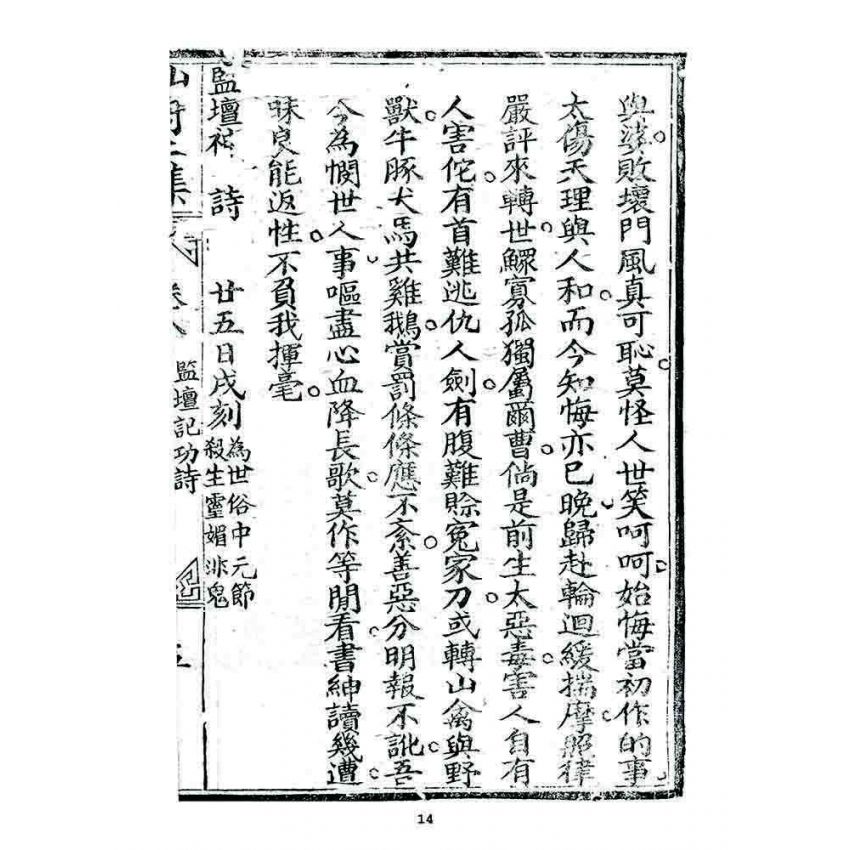 與婆敗壞門風真可恥莫怪人世笑呵呵始悔當初作的事
太傷天理與人和而今知悔亦已晚歸赴輪迴緩揣摩照律
嚴評來轉世鰥寡孤獨屬爾曹倘是前生太惡毒害人自有
人害佗有首難逃仇人劍有腹難賒冤家刀或轉山禽與野
獸牛豚犬馬共雞鵝賞罰條條應不紊善惡分明報不訛吾
今為憫世人事嘔盡心血降長歌莫作等閒看書紳讀幾遭
昧良能返性不負我揮毫
監壇 詩 廿五日戌刻
為世俗中元節
殺生靈媚非鬼
集 卷八 監壇記功詩 五
14